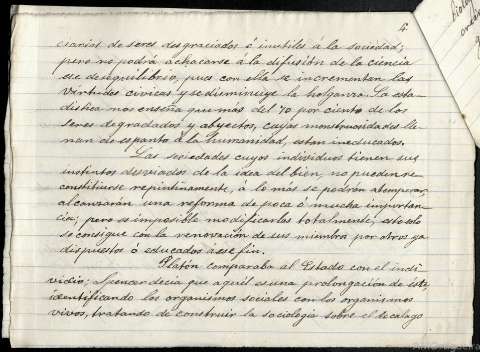 4.
cianias de seres desgraciados é inutiles á la sociedad;
pero no podrá achacarse á la difusión de la ciencia
ese desequilibrio, pues con ella se incrementan las
virtudes cívicas y se disminuye la holganza. La esta-
distica nos enseña que más del 70 por ciento de los
seres degradados y abyectos, cuyas monstruosidades lle-
nan de espanto á la humanidad, estan ineducados.
Las sociedades cuyos individuos tienen sus
instintos desviados de la idea del bien, no pueden re-
constituirse repentinamente, á lo más se podrán atemperar,
alcanzarán una reforma de poca ó mucha importan-
cia; pero es imposible modificarlas totalmente, esto solo
se consigue con la renovación de sus miembros por otros ya
dispuestos ó educados á ese fin.
Platón comparaba al Estado con el indi-
viduo; Spencer decía que aquel es una prolongación de este,
identificando los organismos sociales con los organismos
vivos, tratando de construir la sociología sobre el decalogo